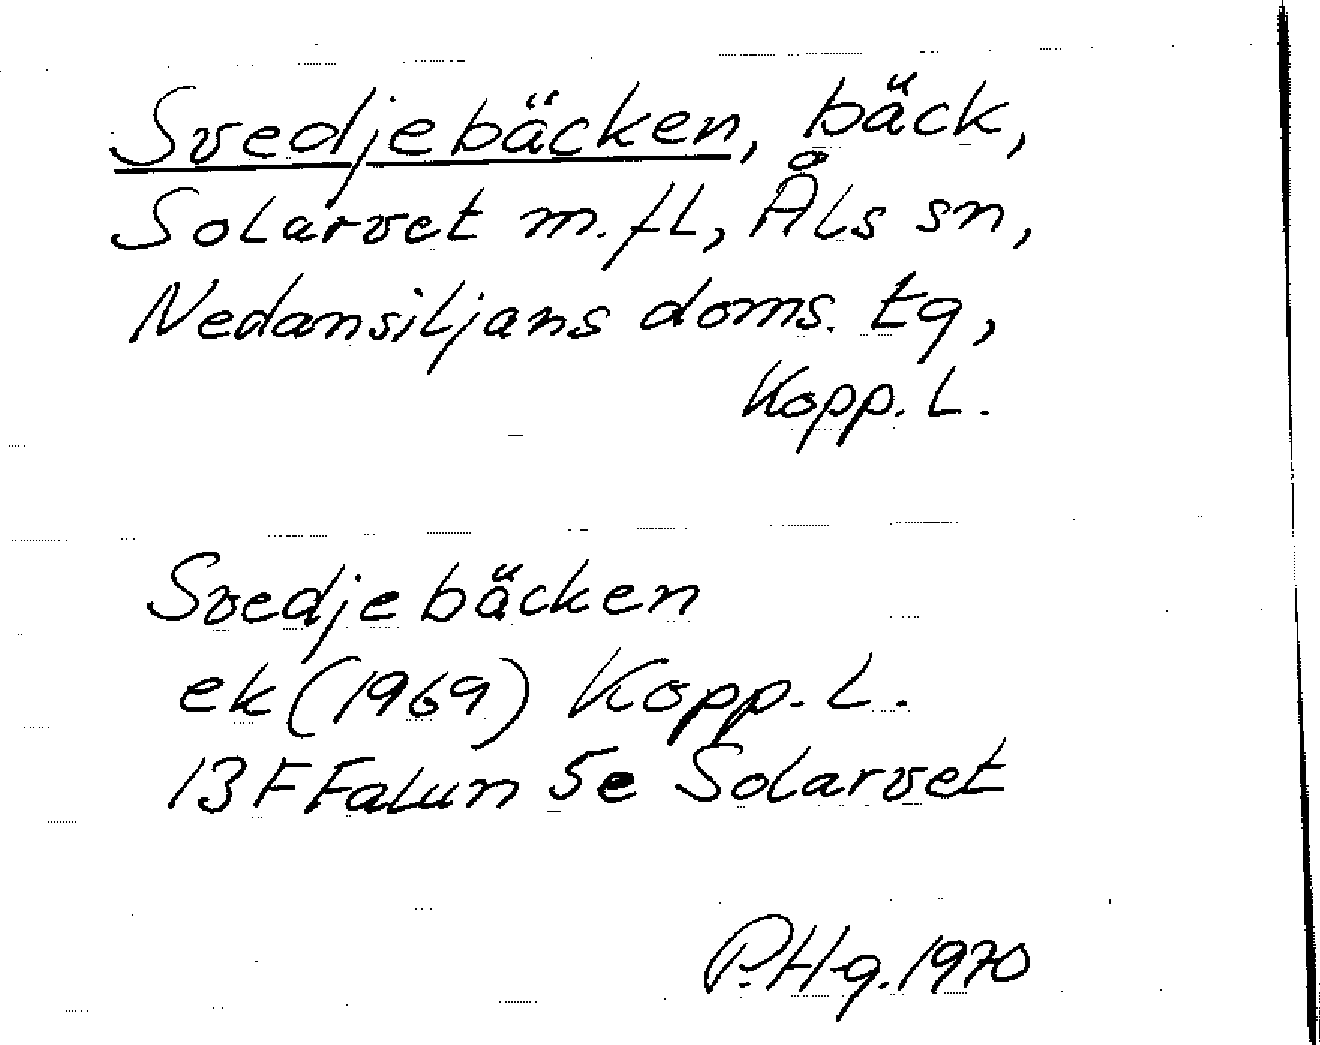 Svedjebäcken, bäck,
Solarvet m.fl, Åls sn,
Nedansiljans doms. tg,
Kopp. L.
Svedjebäcken
ek (1969) Kopp. L.
13F Falun 5e Solarvet
P.Hg. 1970